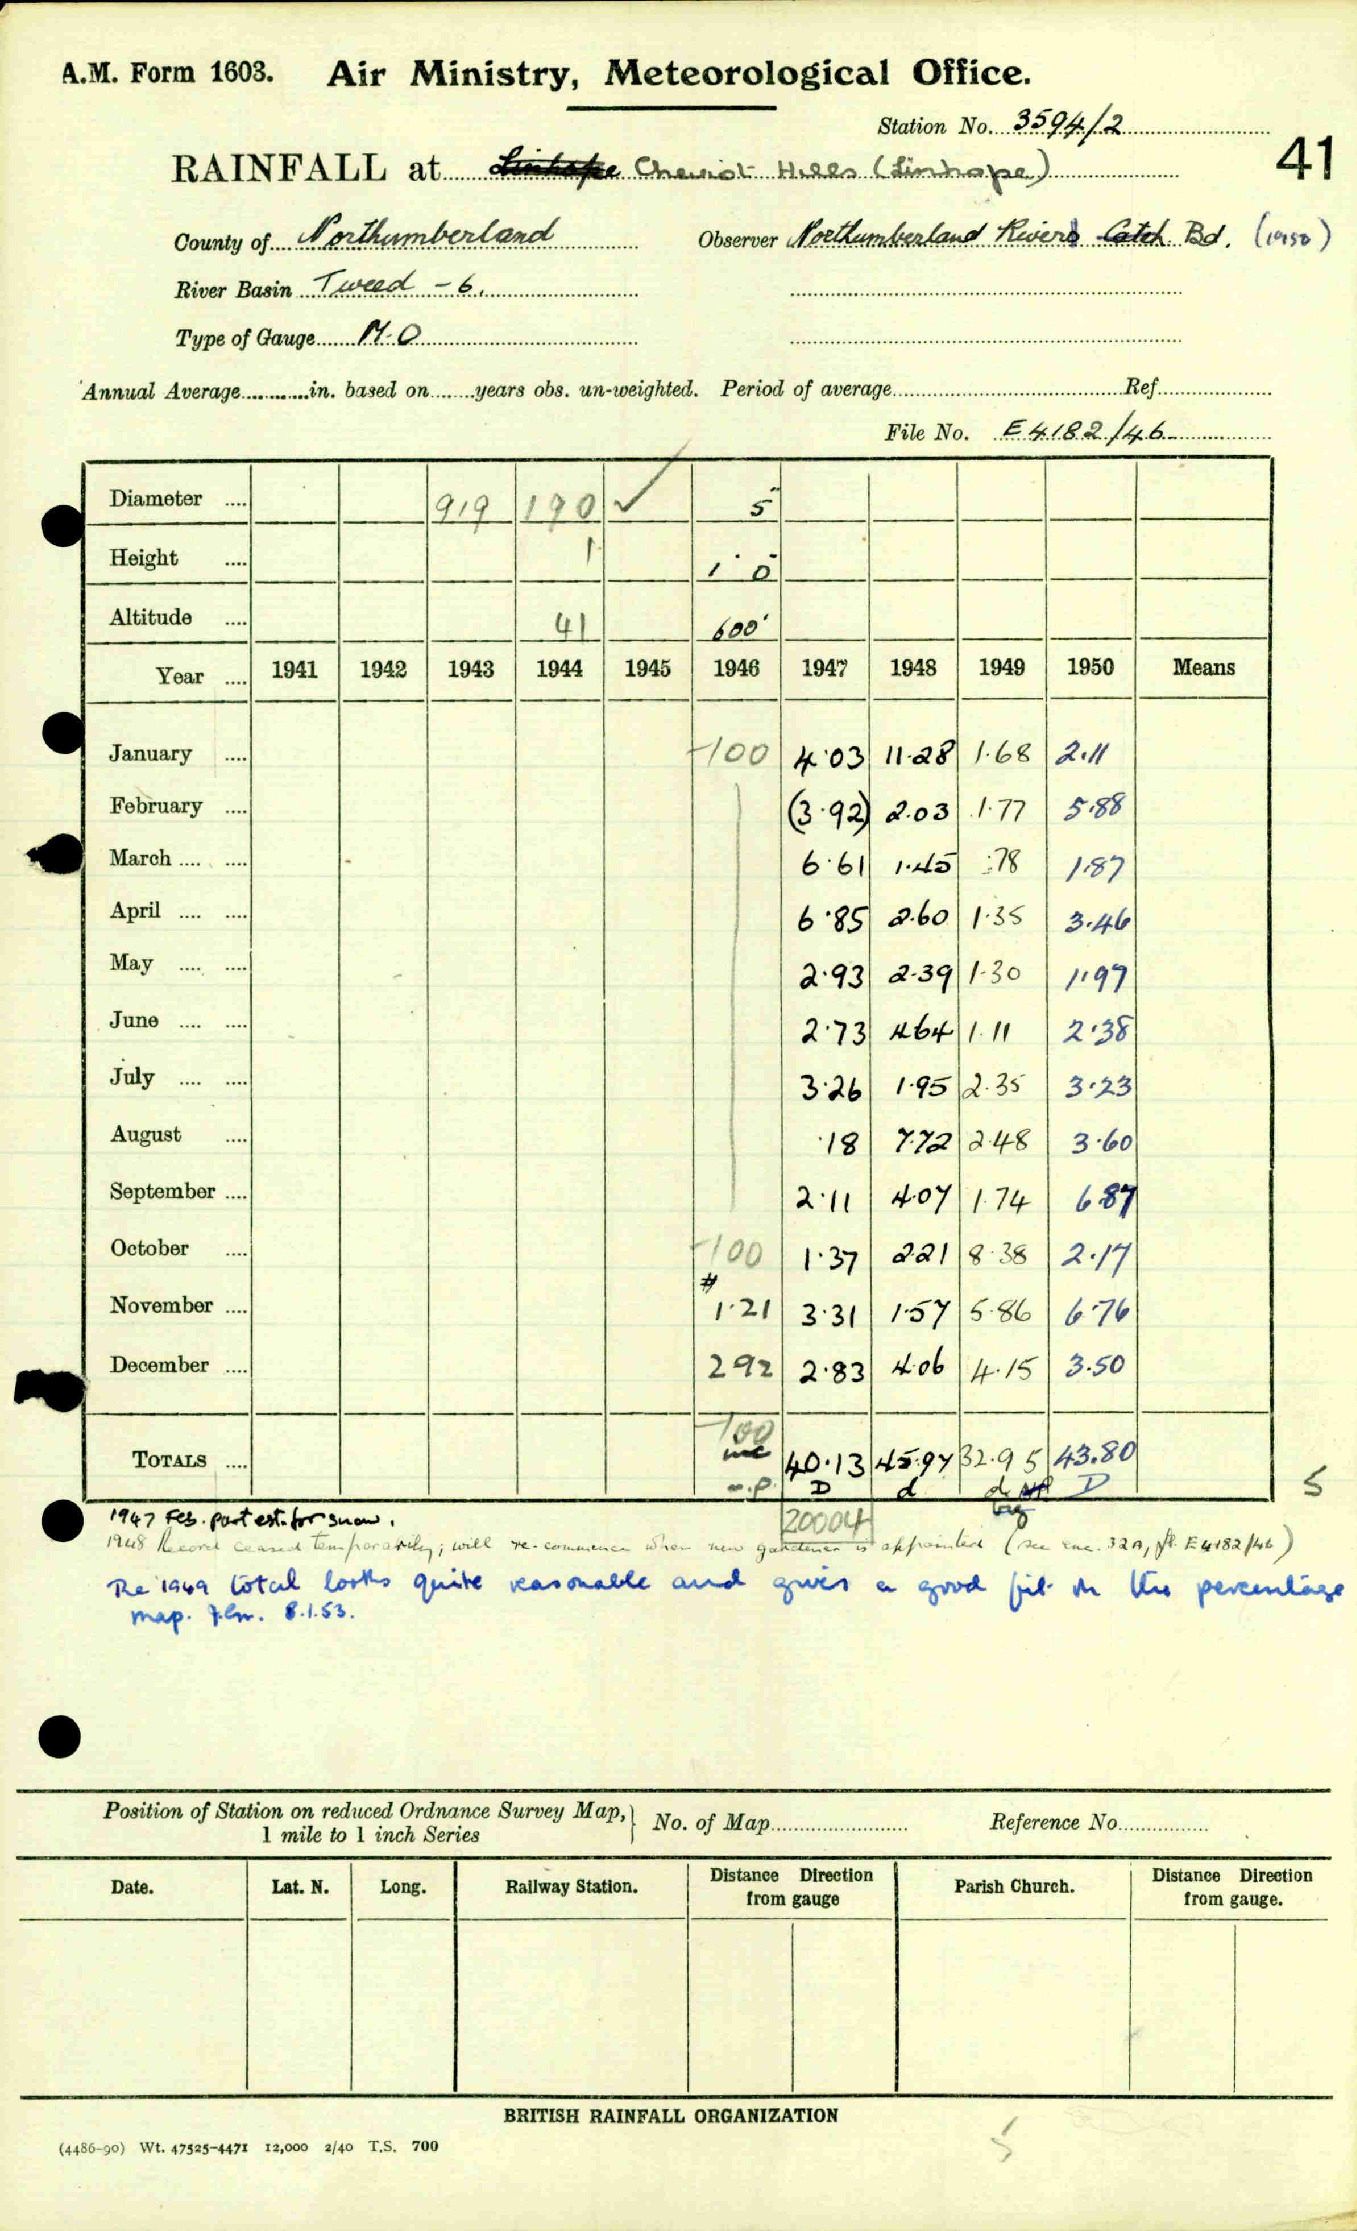 A.M. Form 1603. Air Ministry, Meteorological Office.
Station No. 3594/2
41
RAINFALL at Linhope Cheviot Hills (Linhope)
County of Northumberland Observer Northumberland Rivers Catch. Bd. (1950)
River Basin Tweed - 6.
Type of Gauge M.O
Annual Average in. based on years obs. un-weighted. Period of average Ref
File No. E4182/46
Diameter 919 190 ✓ 5"
Height 1 1' 0"
Altitude 41 600'
Year 1941 1942 1943 1944 1945 1946 1947 1948 1949 1950 Means
January -100 4·03 11·28 1·68 2·11
February (3·92) 2·03 1·77 5·88
March 6·61 1·45 ·78 1·87
April 6·85 2·60 1·35 3·46
May 2·93 2·39 1·30 1·97
June 2·73 4·64 1·11 2·38
July 3·26 1·95 2·35 3·23
August ·18 7·72 2·48 3·60
September 2·11 4·07 1·74 6·87
October -100 1·37 2·21 8·38 2·17
November # 1·21 3·31 1·57 5·86 6·76
December 2 92 2·83 4·06 4·15 3·50
-100
TOTALS inc 40·13 45·97 32·95 43·80
n.p. D d d D
5
1947 Feb. part est. for snow.
20004
1948 Record ceased temporarily; will re-commence when new gardener is appointed (see enc. 32A, E4182/46)
The 1949 total looks quite reasonable and gives a good fit on the percentage
map. 8.1.53.
Position of Station on reduced Ordnance Survey Map, No. of Map Reference No.
1 mile to 1 inch Series
Date. Lat. N. Long. Railway Station. Distance Direction from gauge Parish Church. Distance Direction from gauge.
BRITISH RAINFALL ORGANIZATION
(4486-90) Wt. 47525-4471 12,000 2/40 T.S. 700
5